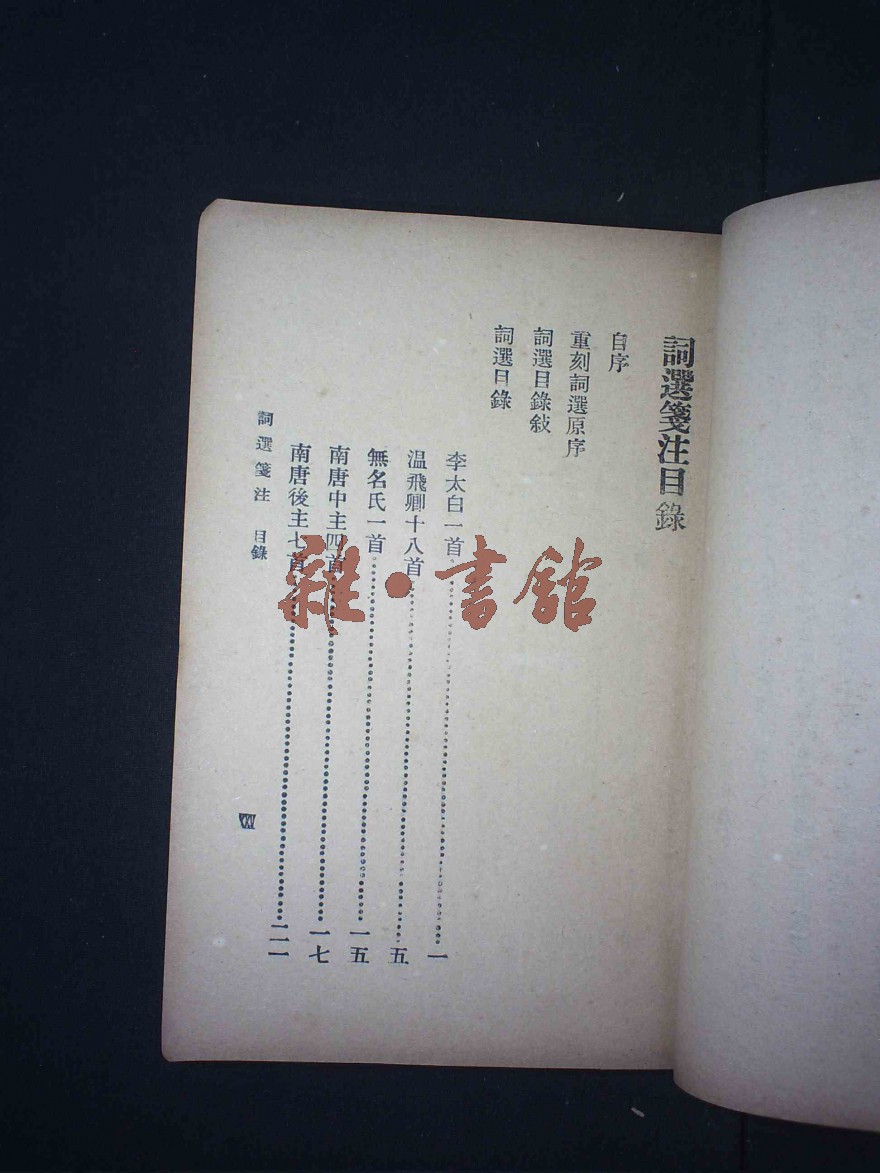 詞選箋注目錄
自序
重刻詞選原序
詞選目錄敍
詞選目錄
李太白一首………一
温飛卿十八首………五
無名氏一首………一五
南唐中主四首………一七
南唐後主七首………二一
詞選箋注 目錄
雜·書館